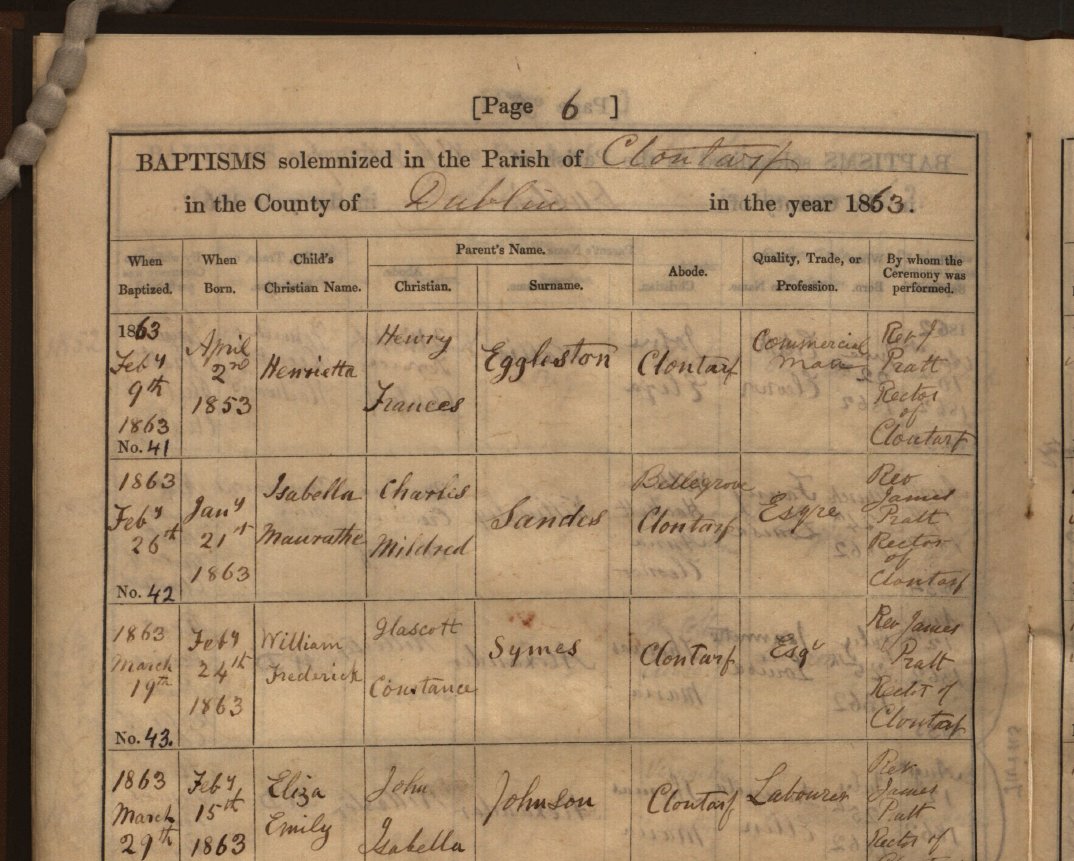 [Page 6]
BAPTISMS solemnized in the Parish of Clontarf
in the County of Dublin in the year 1863.
When Baptized.
When Born.
Child's Christian Name.
Parent's Name.
Christian.
Surname.
Abode.
Quality, Trade, or Profession.
By whom the Ceremony was performed.
1863
Feby
9th
1863
No. 41
April
2nd
1853
Henrietta
Henry
Frances
Eggleston
Clontarf
Commercial
Man
Rev J
Pratt
Rector
of
Clontarf
1863
Feby
26th
No. 42
Jany
21st
1863
Isabella
Charles
Mildred
Sandes
Bellegrove
Clontarf
Esqre
Rev
James
Pratt
Rector
of
Clontarf
1863
March
19th
No. 43.
Feby
24th
1863
William
Frederick
Glascott
Constance
Symes
Clontarf
Esqr
Rev James
Pratt
Rector of
Clontarf
1863
March
29th
Feby
15th
1863
Eliza
Emily
John
Isabella
Johnson
Clontarf
Labourer
Rev
James
Pratt
Rector of